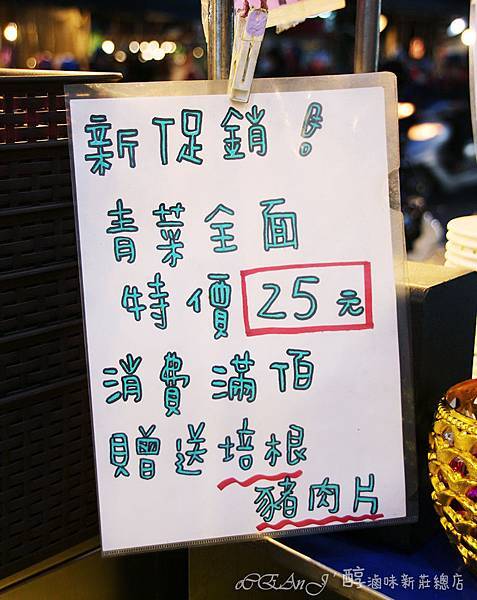 新促銷！
青菜全面
特價25元
消費滿佰
贈送培根
豬肉片
cEAnJ 醇滷味新莊總店